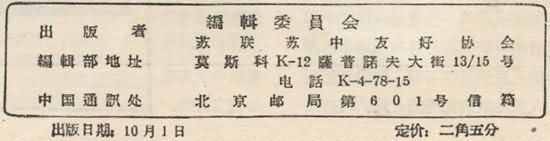 編輯委員会
出版者
苏联苏中友好协会
編輯部地址 莫斯科K-12薩普諾夫大街13/15号
电話 K-4-78-15
中国通訊处 北京邮局第601号信箱
出版日期: 10月1日 定价: 二角五分